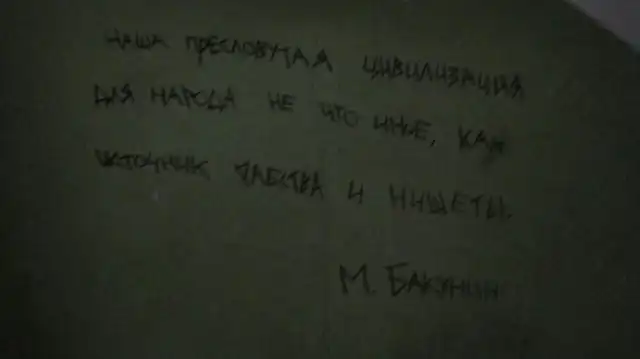 наша пресловутая цивилизация
для народа не что иное, как
источник рабства и нищеты.
М. Бакунин